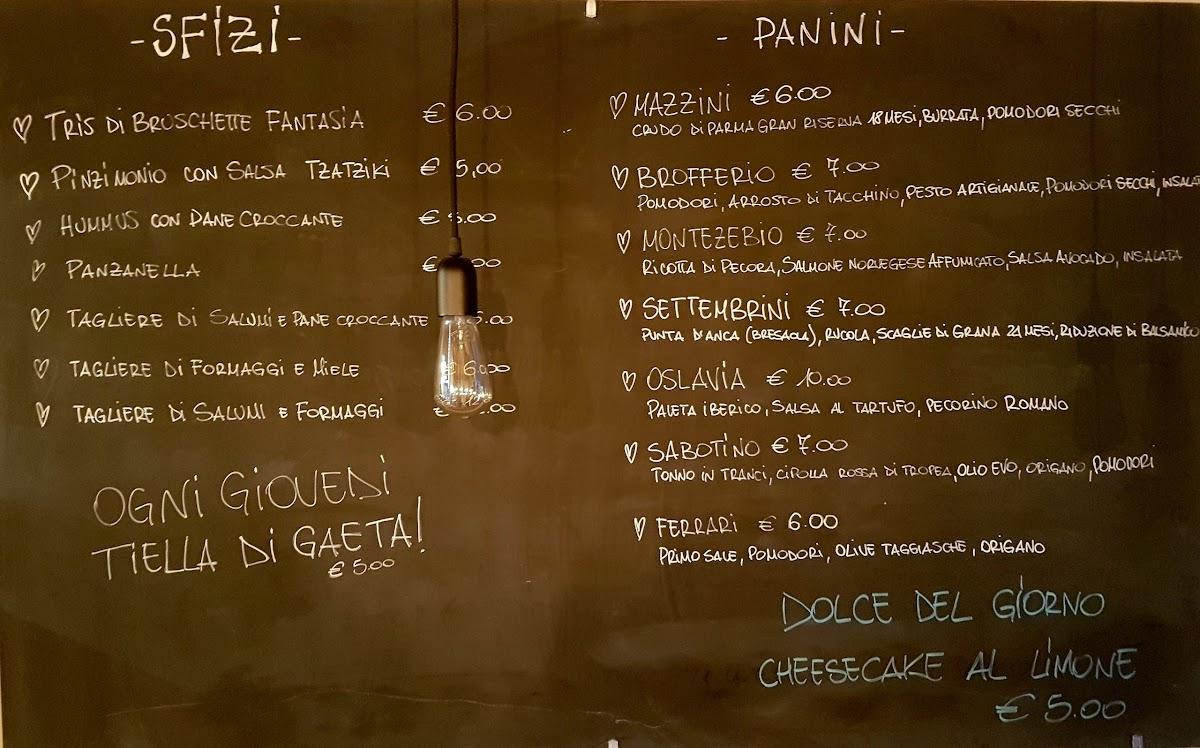 -SFIZI-
TRIS DI BRUSCHETTE FANTASIA € 6.00
PINZIMONIO CON SALSA TZATZIKI € 5,00
HUMMUS CON PANE CROCCANTE €
PANZANELLA €
TAGLIERE DI SALUMI E PANE CROCCANTE
TAGLIERE DI FORMAGGI E MIELE € 6.00
TAGLIERE DI SALUMI E FORMAGGI €
OGNI GIOVEDI
TIELLA DI GAETA!
€ 5.00
- PANINI -
MAZZINI € 6.00
CRUDO DI PARMA GRAN RISERVA 18 MESI, BURRATA, POMODORI SECCHI
BROFFERIO € 7.00
POMODORI, ARROSTO DI TACCHINO, PESTO ARTIGIANALE, POMODORI SECCHI,
MONTEZEBIO € 7.00
RICOTTA DI PECORA, SALMONE NORVEGESE AFFUMICATO, SALSA AVOCADO, INSALATA
SETTEMBRINI € 7.00
PUNTA D'ANCA (BRESAOLA), RUCOLA, SCAGLIE DI GRANA 21 MESI, RIDUZIONE DI BALSAMICO
OSLAVIA € 10.00
PALETA IBERICO, SALSA AL TARTUFO, PECORINO ROMANO
SABOTINO € 7.00
TONNO IN TRANCI, CIPOLLA ROSSA DI TROPEA, OLIO EVO, ORIGANO, POMODORI
FERRARI € 6.00
PRIMO SALE, POMODORI, OLIVE TAGGIASCHE, ORIGANO
DOLCE DEL GIORNO
CHEESECAKE AL LIMONE
€ 5.00